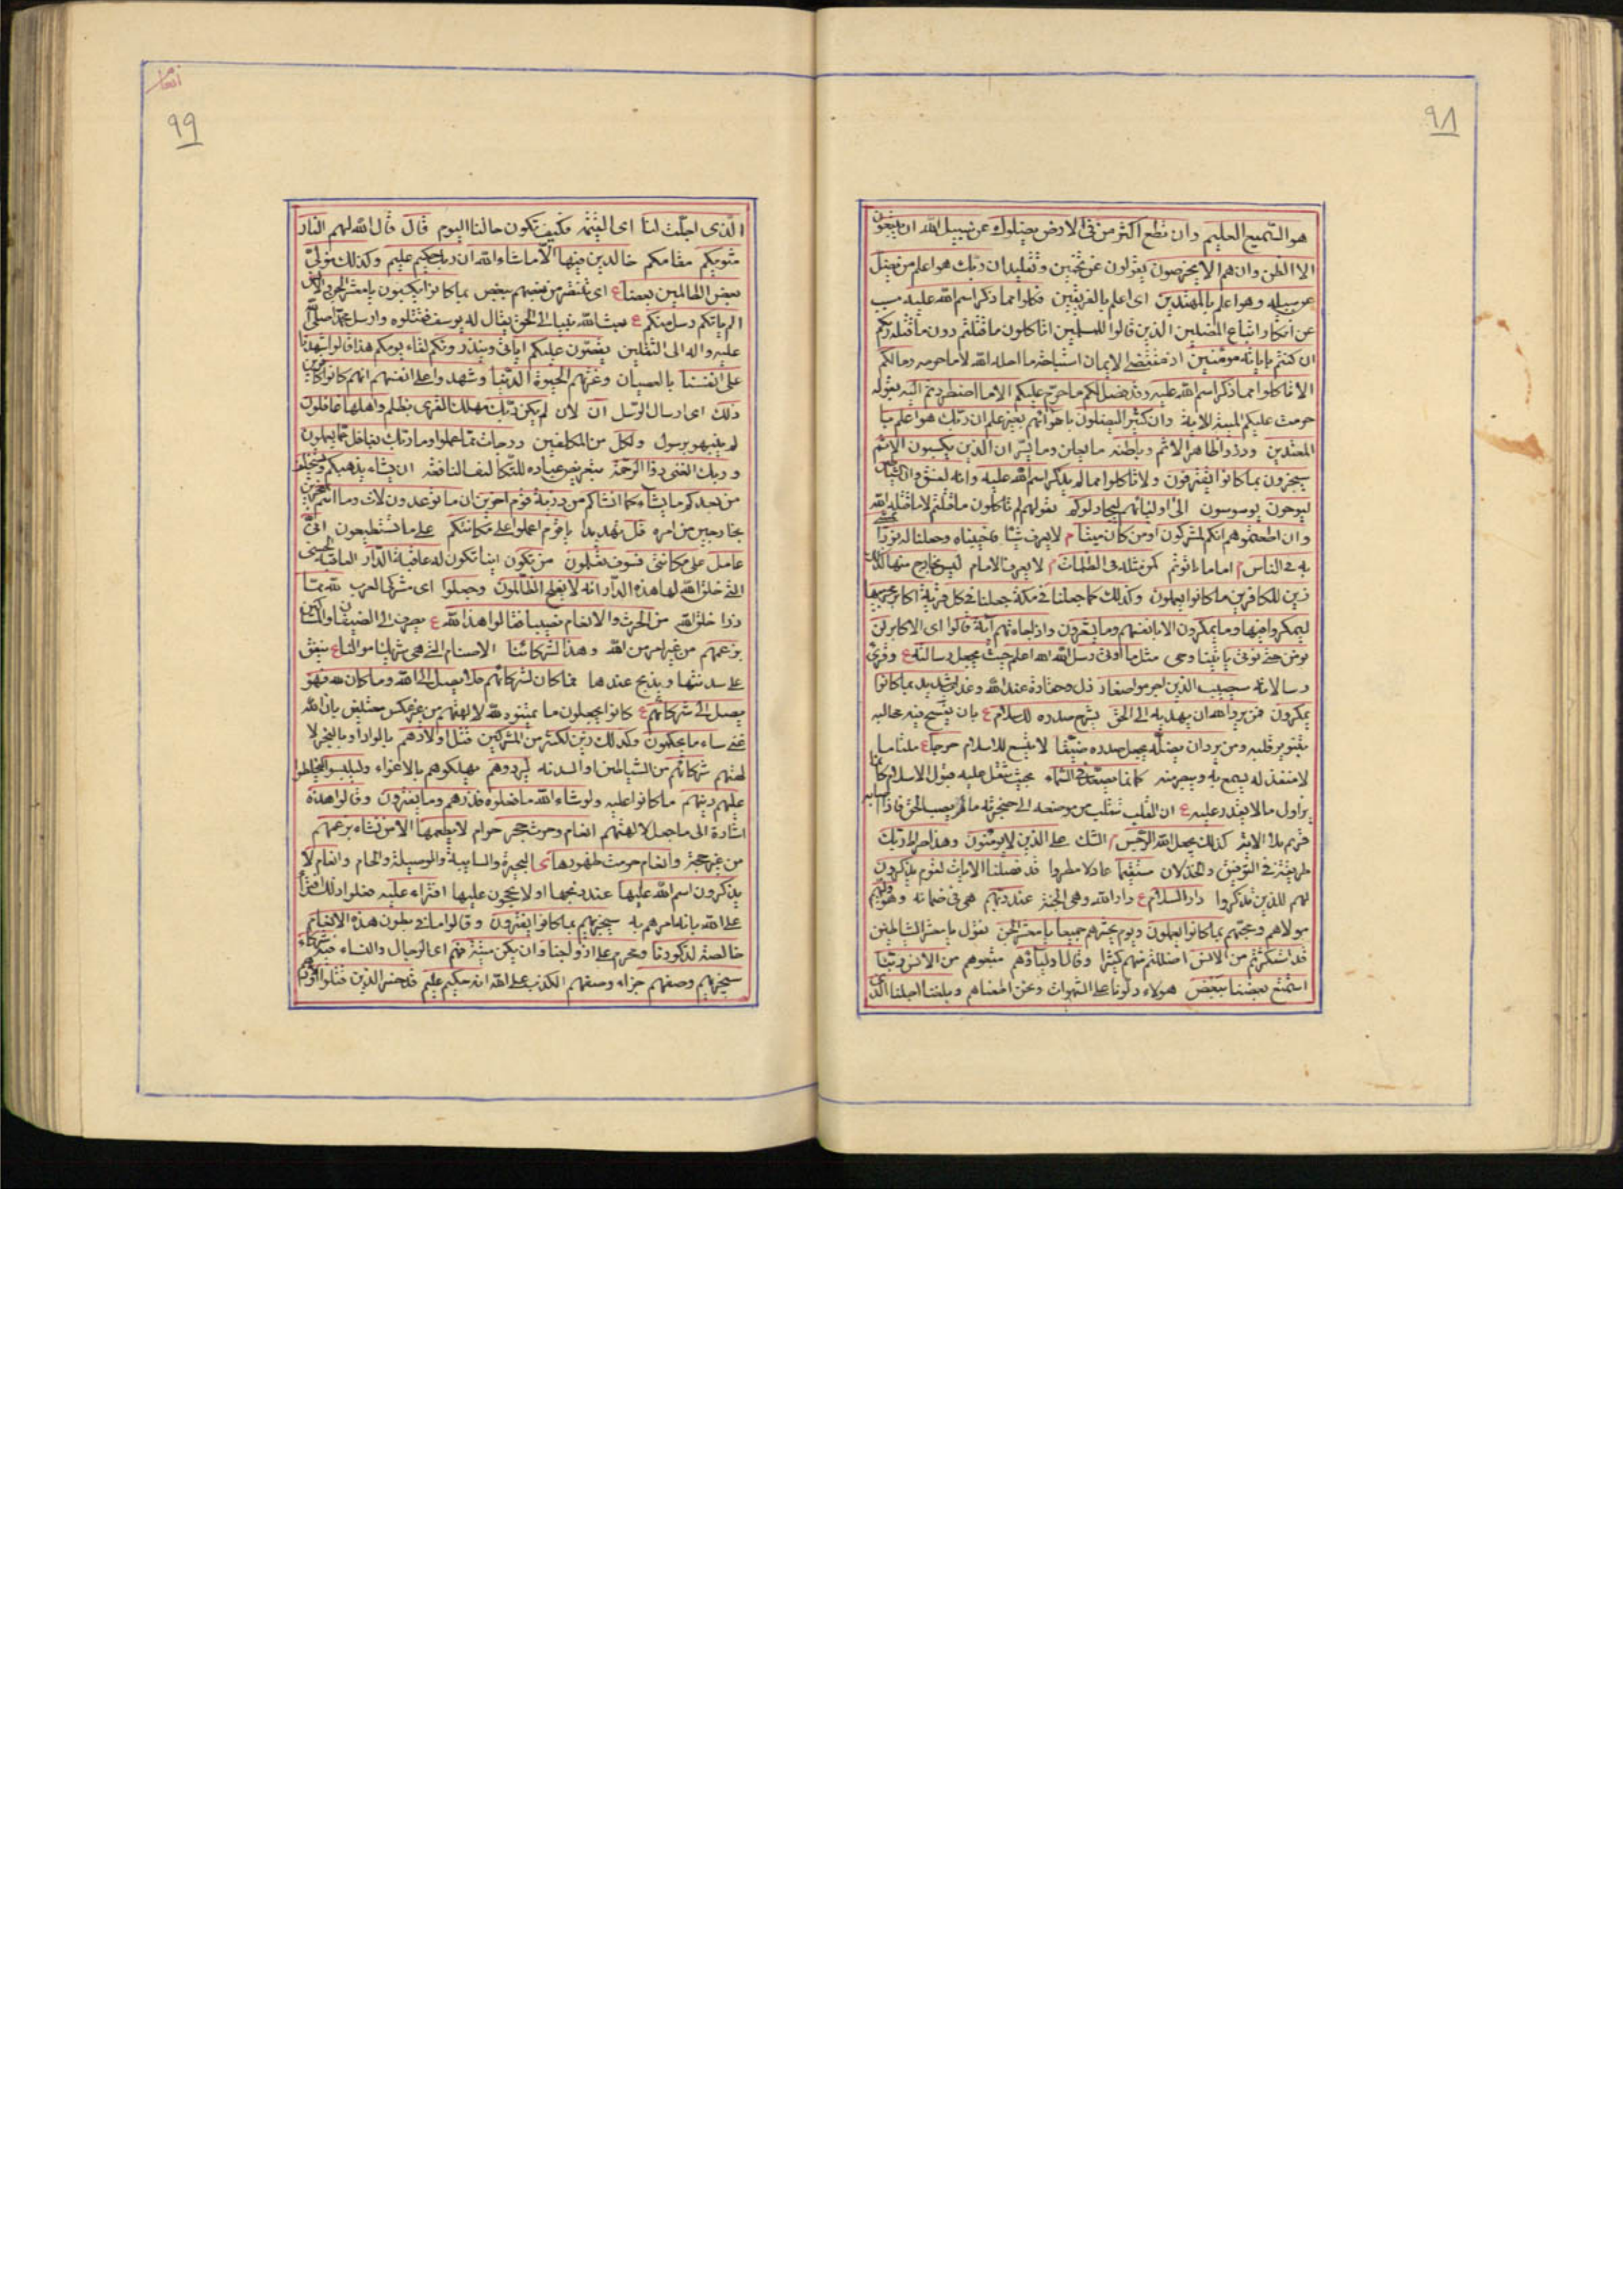 ٩٨
هو السميع العليم وان تطع اكثر من فى الارض يضلوك عن سبيل الله ان يتبعون
الا الظن وان هم الا يخرصون يقولون عن تخمين وتقليد ان ربك هو اعلم من يضل
عن سبيله وهو اعلم بالمهتدين اى اعلم بالفريقين فكلوا مما ذكر اسم الله عليه مسبب
عن انكار اتباع المضلين الذين قالوا للمسلمين اتاكلون ما قتلتم دون ما قتله ربكم
ان كنتم باياته مومنين اذ مقتضى الايمان استباحة ما احله الله لا ما حرمه ومالكم
الا تاكلوا مما ذكر اسم الله عليه وقد فصل لكم ما حرم عليكم الا ما اضطررتم اليه بقوله
حرمت عليكم الميتة الاية وان كثيرا ليضلون باهوائهم بغير علم ان ربك هو اعلم با
المعتدين وذروا ظاهر الاثم وباطنه ما يعلن وما يسر ان الذين يكسبون الاثم
سيجزون بما كانوا يقترفون ولا تاكلوا مما لم يذكر اسم الله عليه وانه لفسق وان الشياطين
ليوحون يوسوسون الى اوليائهم ليجادلوكم بقولهم لم تاكلون ما قتلتم لا ما قتله الله
وان اطعتموهم انكم لمشركون اومن كان ميتا م لا يعرف شيئا فاحييناه وجعلنا له نورا يمشى
به فى الناس م اماما ياتم كمن مثله فى الظلمات م لا يعرف الامام ليس بخارج منها كذلك
زين للكافرين ما كانوا يعملون وكذلك كما جعلنا فى مكة جعلنا فى كل قرية اكابر مجرميها
ليمكروا فيها وما يمكرون الا بانفسهم وما يشعرون واذا جاءتهم آية قالوا اى الاكابر لن
نومن حتى نوتى ياتينا وحى مثل ما اوتى رسل الله الله اعلم حيث يجعل رسالته ع وقرئ
رسالاته سيصيب الذين اجرموا صغار ذل وحقارة عند الله وعذاب شديد بما كانوا
يمكرون فمن يرد الله ان يهديه الى الحق يشرح صدره للاسلام ع بان يتسع فيه مجاليه
بتنوير قلبه ومن يرد ان يضله يجعل صدره ضيقا لا يتسع للاسلام حرجا ع ملتاما
لا منفذ له يسمع به ويبصر منه كانما يصعد فى السماء بحيث يثقل عليه قبول الاسلام كانما
يزاول ما لا يقدر عليه ع ان القلب يتقلب من موضعه الى حنجرته ما لم يصب الحق فاذا اصابه
قر كذلك يجعل الله الرجس م الشك على الذين لا يومنون وهذا صراط ربك
طريقته فى التوفيق والخذلان مستقيما عادلا مطردا قد فصلنا الايات لقوم يذكرون
لهم للذين تذكروا دار السلام ع دار الله وهى الجنة عند ربهم هى فى ضمانه وهو وليهم
مولاهم ومحبهم بما كانوا يعملون ويوم يحشرهم جميعا يا معشر الجن نقول يا معشر الشياطين
قد استكثرتم من الانس اضللتم منهم كثيرا وقال اولياؤهم متبعوهم من الانس ربنا
استمتع بعضنا ببعض هولاء دلونا على الشهوات ونحن اطعناهم وبلغنا اجلنا الذى
انعام
٩٩
الذى اجلت لنا اى القيمة فكيف تكون حالنا اليوم قال قال الله لهم النار
مثويكم مقامكم خالدين فيها الا ما شاء الله ان ربك حكيم عليم وكذلك نولى
بعض الظالمين بعضا ع اى ننتصر من بعضهم ببعض بما كانوا يكسبون يا معشر الجن والانس
الم ياتكم رسل منكم ع بعث الله نبيا الى الجن يقال له يوسف فقتلوه وارسل محمدا صلى الله
عليه واله الى الثقلين يقصون عليكم اياتى وينذرونكم لقاء يومكم هذا قالوا شهدنا
على انفسنا بالعصيان وغرتهم الحيوة الدنيا وشهدوا على انفسهم انهم كانوا كافرين
ذلك اى ارسال الرسل ان لان لم يكن ربك مهلك القرى بظلم واهلها غافلون
لم ينبهوا برسول ولكل من المكلفين درجات مما عملوا وما ربك بغافل عما يعملون
وربك الغنى ذو الرحمة بتعريض عباده للتكاليف النافعة ان يشاء يذهبكم ويستخلف
من بعدكم ما يشاء كما انشاكم من ذرية قوم اخرين ان ما توعدون لات وما انتم بمعجزين
بخارجين من امره قل تهديدا يا قوم اعملوا على مكانتكم على ما تستطيعون انى
عامل على مكانتى فسوف تعلمون من تكون اينا تكون له عاقبة الدار العاقبة الحسنى
التى خلق الله لها هذه الدار انه لا يفلح الظالمون وجعلوا اى مشركى العرب لله مما
ذرا خلق الله من الحرث والانعام نصيبا فقالوا هذا لله ع يصرف الى الضيفان والمساكين
بزعمهم من غير امر من الله وهذا لشركائنا الاصنام التى هى شركاؤنا فى اموالنا ع ينفق
على سدنتها ويذبح عندها فما كان لشركائهم فلا يصل الى الله وما كان لله فهو
يصل الى شركائهم ع كانوا يجعلون ما عينوه لله لالهتهم من غير عكس معتلين بان الله
غنى ساء ما يحكمون وكذلك زين لكثير من المشركين قتل اولادهم بالواد او بالنحر لا
لهتهم شركائهم من الشياطين او السدنة ليردوهم يهلكوهم بالاغواء وليلبسوا ليخلطوا
عليهم دينهم ما كانوا عليه ولو شاء الله ما فعلوه فذرهم وما يفترون وقالوا هذه
اشارة الى ما جعل لالهتهم انعام وحرث حجر حرام لا يطعمها الا من نشاء بزعمهم
من غير حجة وانعام حرمت ظهورها ى البحيرة والسايبة والوسيلة والحام وانعام لا
يذكرون اسم الله عليها عند ذبحها او لا يحجون عليها افتراء عليه فعلوا ذلك افتراء
على الله بانه امرهم به سيجزيهم بما كانوا يفترون وقالوا ما فى بطون هذه الانعام
خالصة لذكورنا ومحرم على ازواجنا وان يكن ميتة فهم اى الرجال والنساء فيه شركاء
سيجزيهم وصفهم جزاء وصفهم الكذب على الله انه حكيم عليم قد خسر الذين قتلوا اولادهم